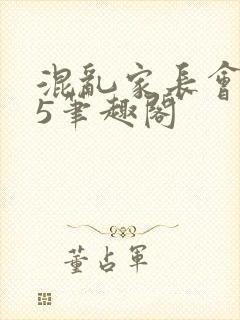 混亂家長會
5筆趣閣
董占軍